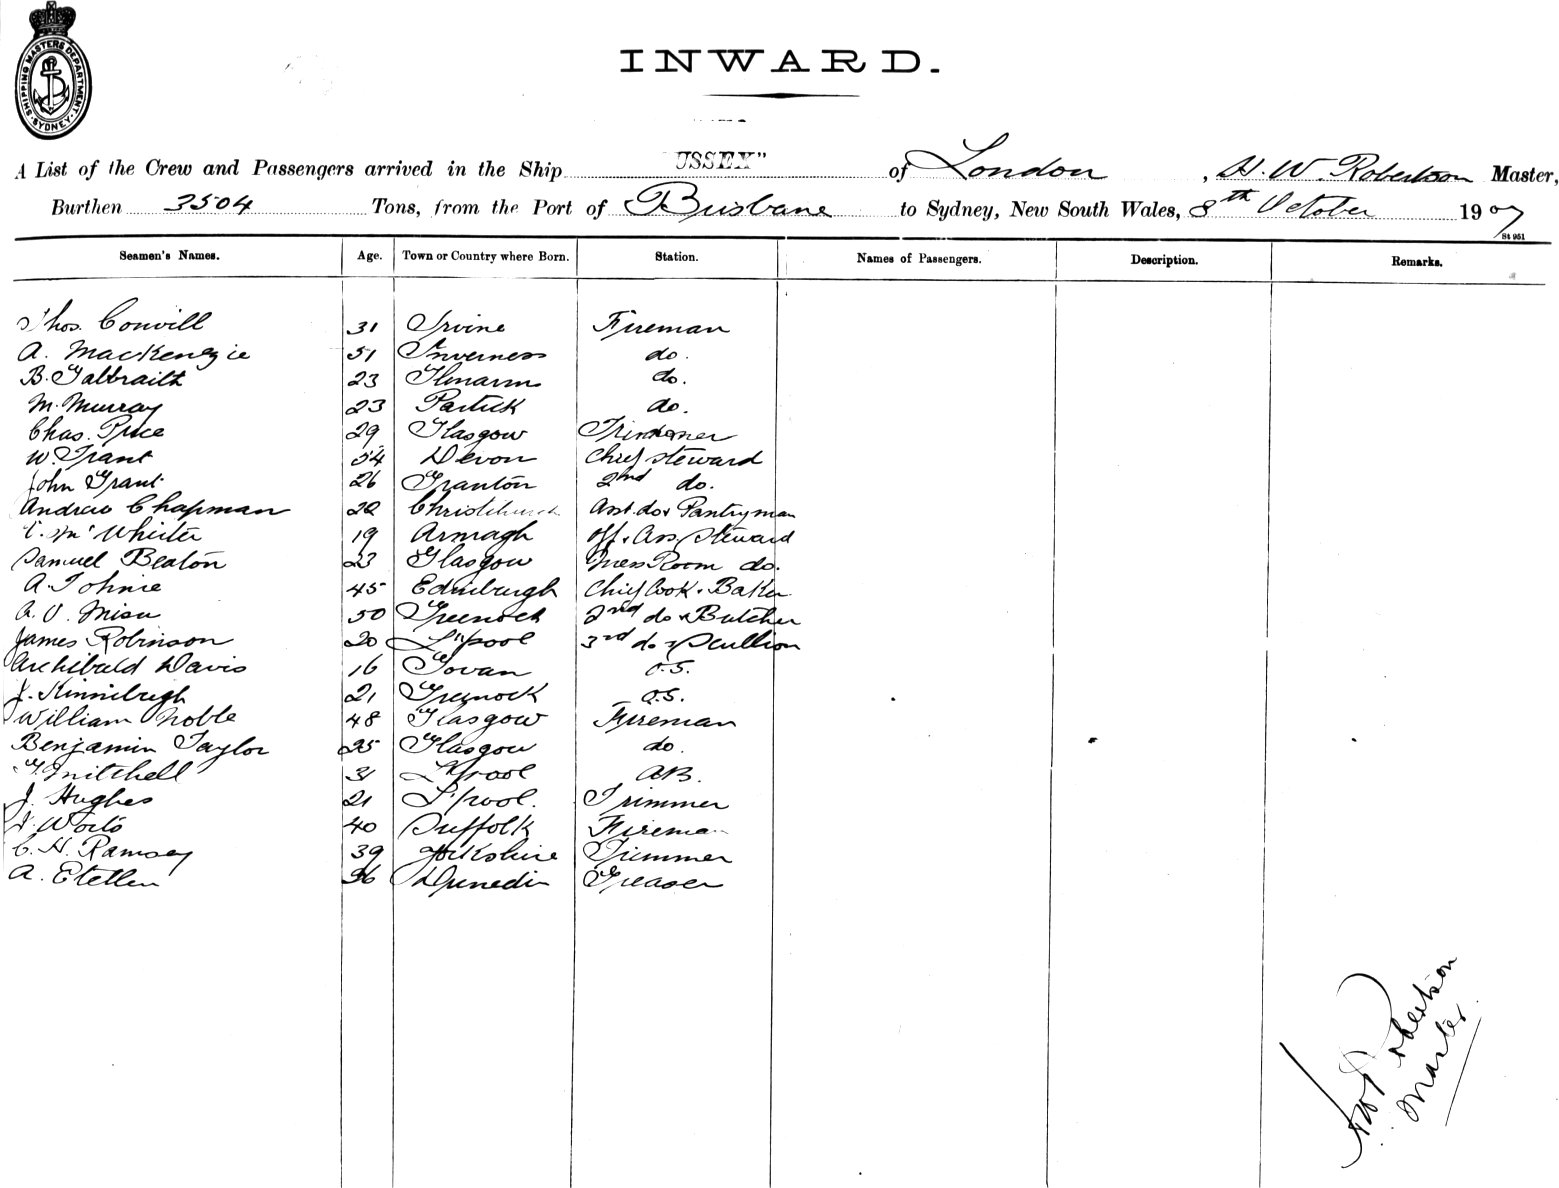 SHIPPING MASTERS DEPARTMENT. SYDNEY.
INWARD.
A List of the Crew and Passengers arrived in the Ship USSEX" of London, H. W. Robertson Master,
Burthen 3504 Tons, from the Port of Brisbane to Sydney, New South Wales, 8th October 1907
St 951
Seamen's Names. Age. Town or Country where Born. Station. Names of Passengers. Description. Remarks.
Thos. Convill 31 Irvine Fireman
A. MacKenzie 51 Inverness do.
B. Galbraith 23 do.
M. Murray 23 Partick do.
Chas. Price 29 Glasgow Trimmer
W. Grant 54 Devon Chief Steward
John Grant 26 Granton 2nd do.
Andrew Chapman 22 Christchurch Asst. do & Pantryman
Mc Whirter 19 Armagh Off. Ass Steward
Samuel Beaton 23 Glasgow Mess Room do.
A. Tohnie 45 Edinburgh Chief Cook & Baker
A. V. 50 Greenock 2nd do & Butcher
James Robinson 20 L'pool 3rd do & Scullion
Archibald Davis 16 Govan O.S.
J. Kinniburgh 21 Greenock O.S.
William Noble 48 Glasgow Fireman
Benjamin Taylor 25 Glasgow do.
G. Mitchell 31 L'pool AB.
J. Hughes 21 L'pool. Trimmer
40 Suffolk Fireman
C. H. Ramsey 39 Yorkshire Trimmer
A. 36 Dunedin Greaser
H W Robertson
Master